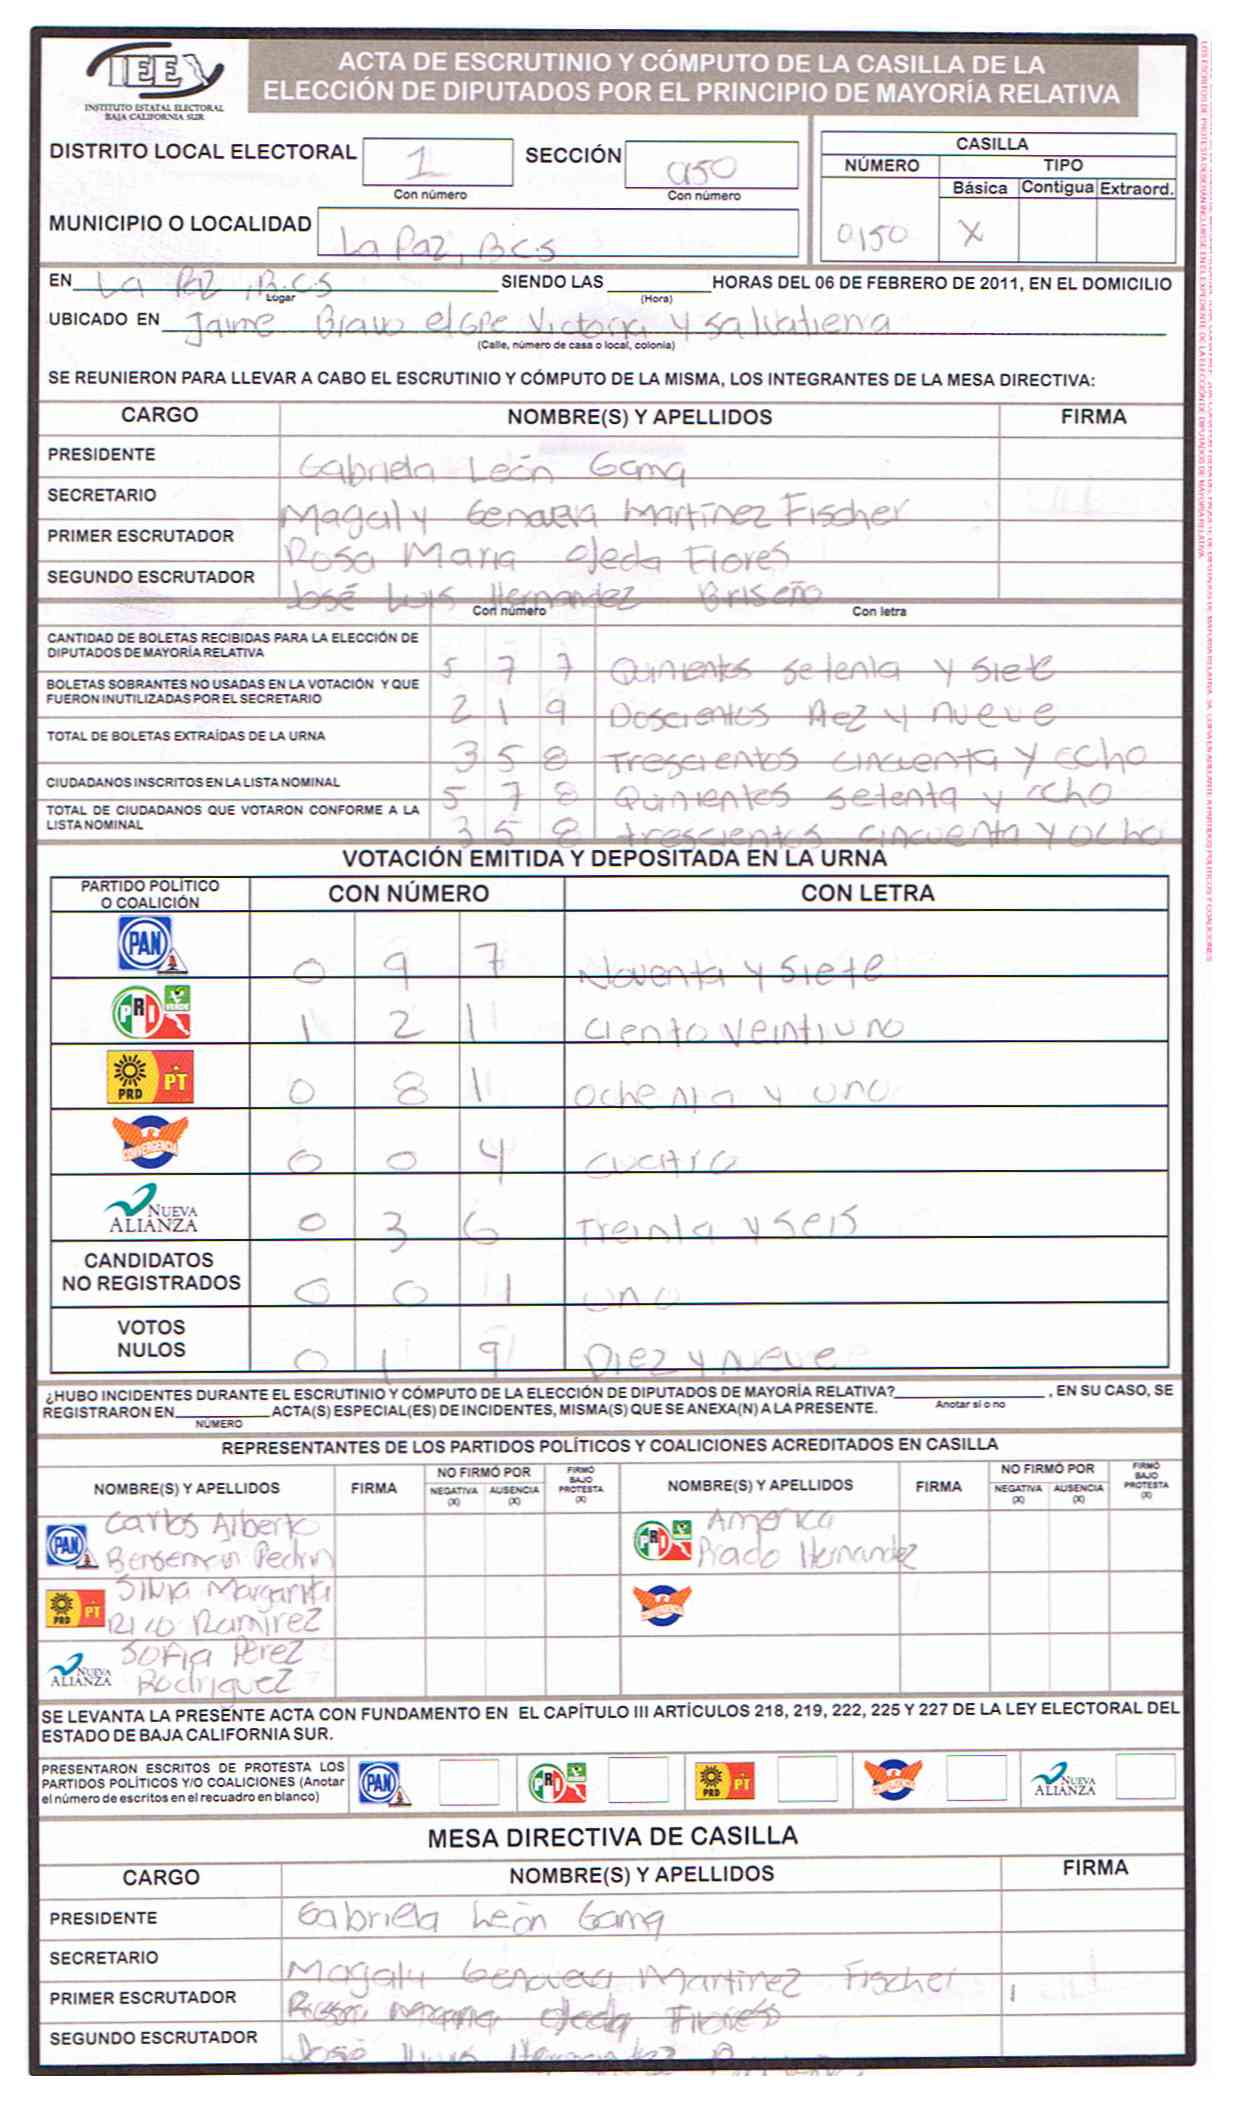 IEE
INSTITUTO ESTATAL ELECTORAL
BAJA CALIFORNIA SUR
ACTA DE ESCRUTINIO Y CÓMPUTO DE LA CASILLA DE LA
ELECCIÓN DE DIPUTADOS POR EL PRINCIPIO DE MAYORÍA RELATIVA
DISTRITO LOCAL ELECTORAL 1 SECCIÓN 0150
Con número Con número
MUNICIPIO O LOCALIDAD La Paz, B.C.S
CASILLA
NÚMERO TIPO
Básica Contigua Extraord.
0150 X
EN La Paz, B.C.S SIENDO LAS HORAS DEL 06 DE FEBRERO DE 2011, EN EL DOMICILIO
Lugar (Hora)
UBICADO EN Jaime Bravo e/Gpe Victoria y Salvatierra
(Calle, número de casa o local, colonia)
SE REUNIERON PARA LLEVAR A CABO EL ESCRUTINIO Y CÓMPUTO DE LA MISMA, LOS INTEGRANTES DE LA MESA DIRECTIVA:
CARGO NOMBRE(S) Y APELLIDOS FIRMA
PRESIDENTE Gabriela León Gama
SECRETARIO Magaly Genoveva Martínez Fischer
PRIMER ESCRUTADOR Rosa Maria Ojeda Flores
SEGUNDO ESCRUTADOR José Luis Hernandez Briseño
Con número Con letra
CANTIDAD DE BOLETAS RECIBIDAS PARA LA ELECCIÓN DE
DIPUTADOS DE MAYORÍA RELATIVA 5 7 7 Quinientos setenta y siete
BOLETAS SOBRANTES NO USADAS EN LA VOTACIÓN Y QUE
FUERON INUTILIZADAS POR EL SECRETARIO 2 1 9 Doscientos diez y nueve
TOTAL DE BOLETAS EXTRAÍDAS DE LA URNA 3 5 8 Trescientos cincuenta y ocho
CIUDADANOS INSCRITOS EN LA LISTA NOMINAL 5 7 8 Quinientos setenta y ocho
TOTAL DE CIUDADANOS QUE VOTARON CONFORME A LA
LISTA NOMINAL 3 5 8 trescientos cincuenta y ocho
VOTACIÓN EMITIDA Y DEPOSITADA EN LA URNA
PARTIDO POLÍTICO
O COALICIÓN CON NÚMERO CON LETRA
PAN 0 9 7 Noventa y siete
PRI VERDE 1 2 1 ciento veintiuno
PRD PT 0 8 1 ochenta y uno
CONVERGENCIA 0 0 4 cuatro
NUEVA ALIANZA 0 3 6 treinta y seis
CANDIDATOS
NO REGISTRADOS 0 0 1 uno
VOTOS
NULOS 0 1 9 Diez y nueve
¿HUBO INCIDENTES DURANTE EL ESCRUTINIO Y CÓMPUTO DE LA ELECCIÓN DE DIPUTADOS DE MAYORÍA RELATIVA? , EN SU CASO, SE
Anotar si o no
REGISTRARON EN ACTA(S) ESPECIAL(ES) DE INCIDENTES, MISMA(S) QUE SE ANEXA(N) A LA PRESENTE.
NÚMERO
REPRESENTANTES DE LOS PARTIDOS POLÍTICOS Y COALICIONES ACREDITADOS EN CASILLA
NOMBRE(S) Y APELLIDOS FIRMA NO FIRMÓ POR NEGATIVA (X) AUSENCIA (X) FIRMÓ BAJO PROTESTA (X) NOMBRE(S) Y APELLIDOS FIRMA NO FIRMÓ POR NEGATIVA (X) AUSENCIA (X) FIRMÓ BAJO PROTESTA (X)
PAN Carlos Alberto
PRI VERDE América
Prado Hernandez
PRD PT Silvia Margarita
Rico Ramirez
CONVERGENCIA
NUEVA ALIANZA Sofia Perez
Rodriguez
SE LEVANTA LA PRESENTE ACTA CON FUNDAMENTO EN EL CAPÍTULO III ARTÍCULOS 218, 219, 222, 225 Y 227 DE LA LEY ELECTORAL DEL
ESTADO DE BAJA CALIFORNIA SUR.
PRESENTARON ESCRITOS DE PROTESTA LOS
PARTIDOS POLÍTICOS Y/O COALICIONES (Anotar
el número de escritos en el recuadro en blanco)
PAN PRI VERDE PRD PT CONVERGENCIA NUEVA ALIANZA
MESA DIRECTIVA DE CASILLA
CARGO NOMBRE(S) Y APELLIDOS FIRMA
PRESIDENTE Gabriela León Gama
SECRETARIO Magaly Genoveva Martinez Fischer
PRIMER ESCRUTADOR Rosa Maria Ojeda Flores
SEGUNDO ESCRUTADOR José Luis Hernandez